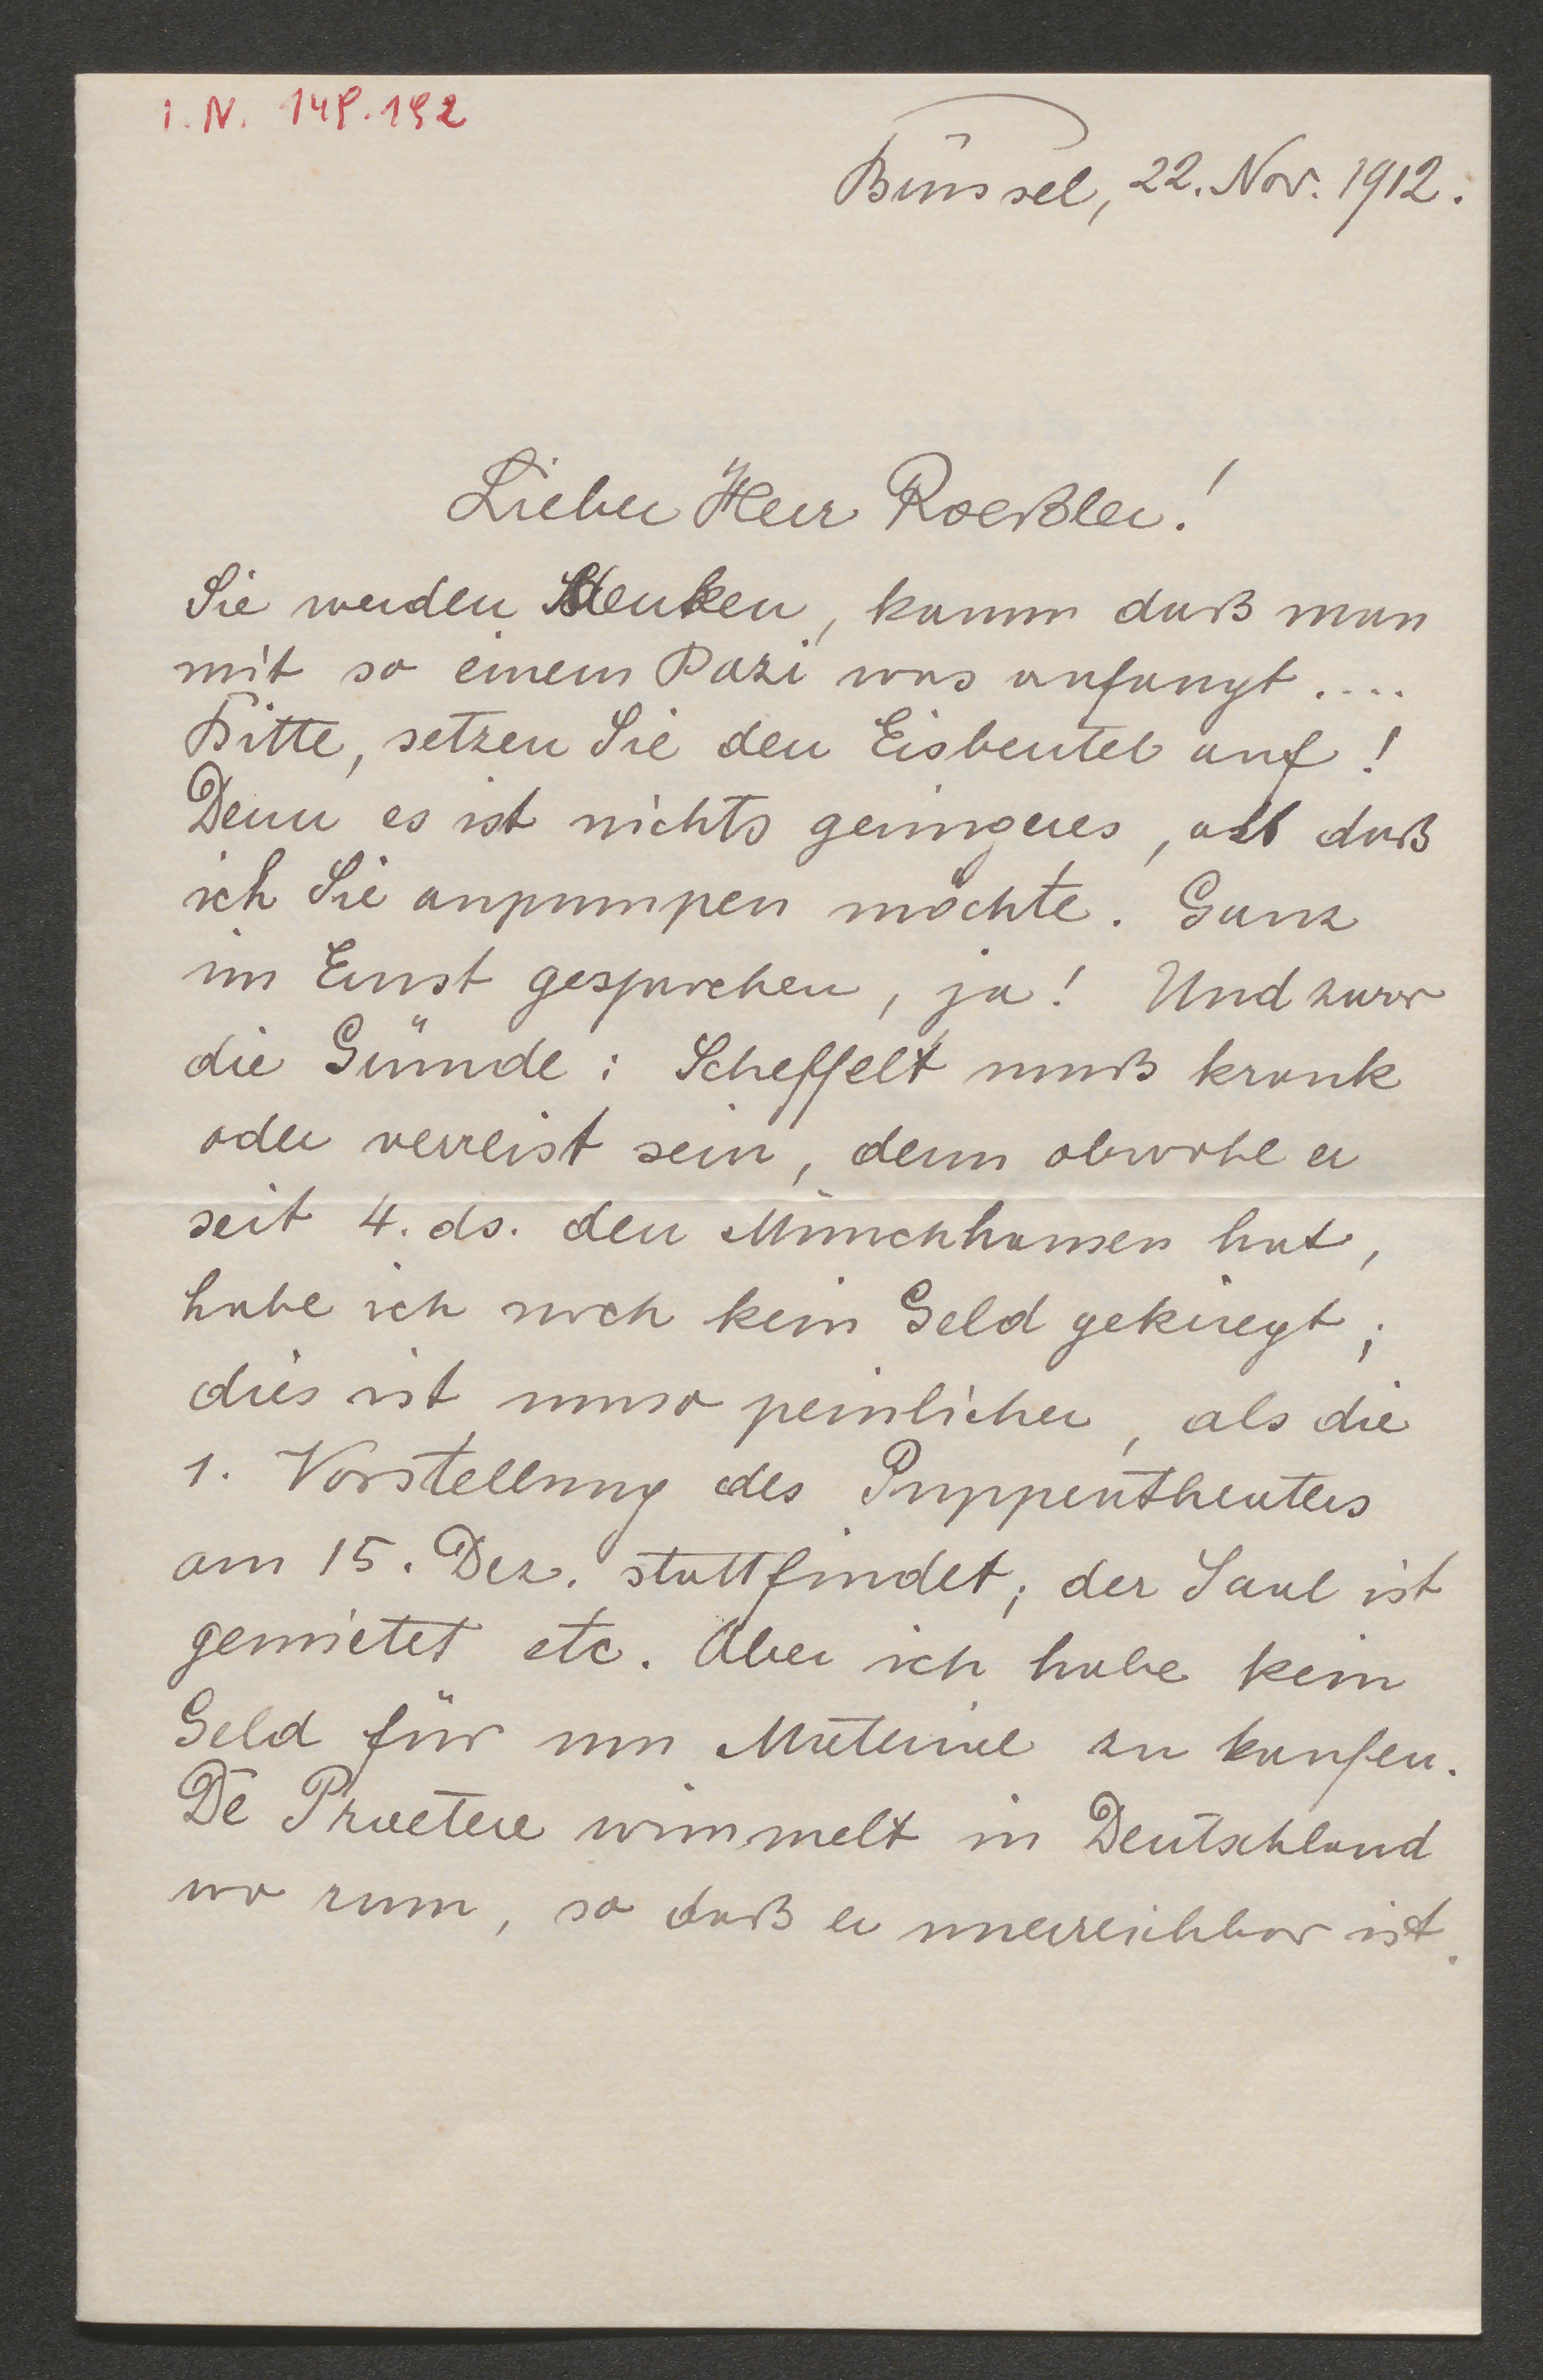 I.N. 149.192
Brüssel, 22. Nov. 1912.
Lieber Herr Roeßler!
Sie werden denken, kaum daß man
mit so einem Bazi was anfangt....
Bitte, setzen Sie den Eisbeutel auf!
Denn es ist nichts geringeres, als daß
ich Sie anpumpen möchte. Ganz
im Ernst gesprochen, ja! Und zwar
die Gründe: Scheffelt muß krank
oder verreist sein, denn obwohl er
seit 4. ds. den Münchhausen hat,
habe ich noch kein Geld gekriegt;
dies ist umso peinlicher, als die
1. Vorstellung des Puppentheaters
am 15. Dez. stattfindet; der Saal ist
gemietet etc. Aber ich habe kein
Geld für um Material zu kaufen.
De Praetere wimmelt in Deutschland
wo rum, so daß er unerreichbar ist.